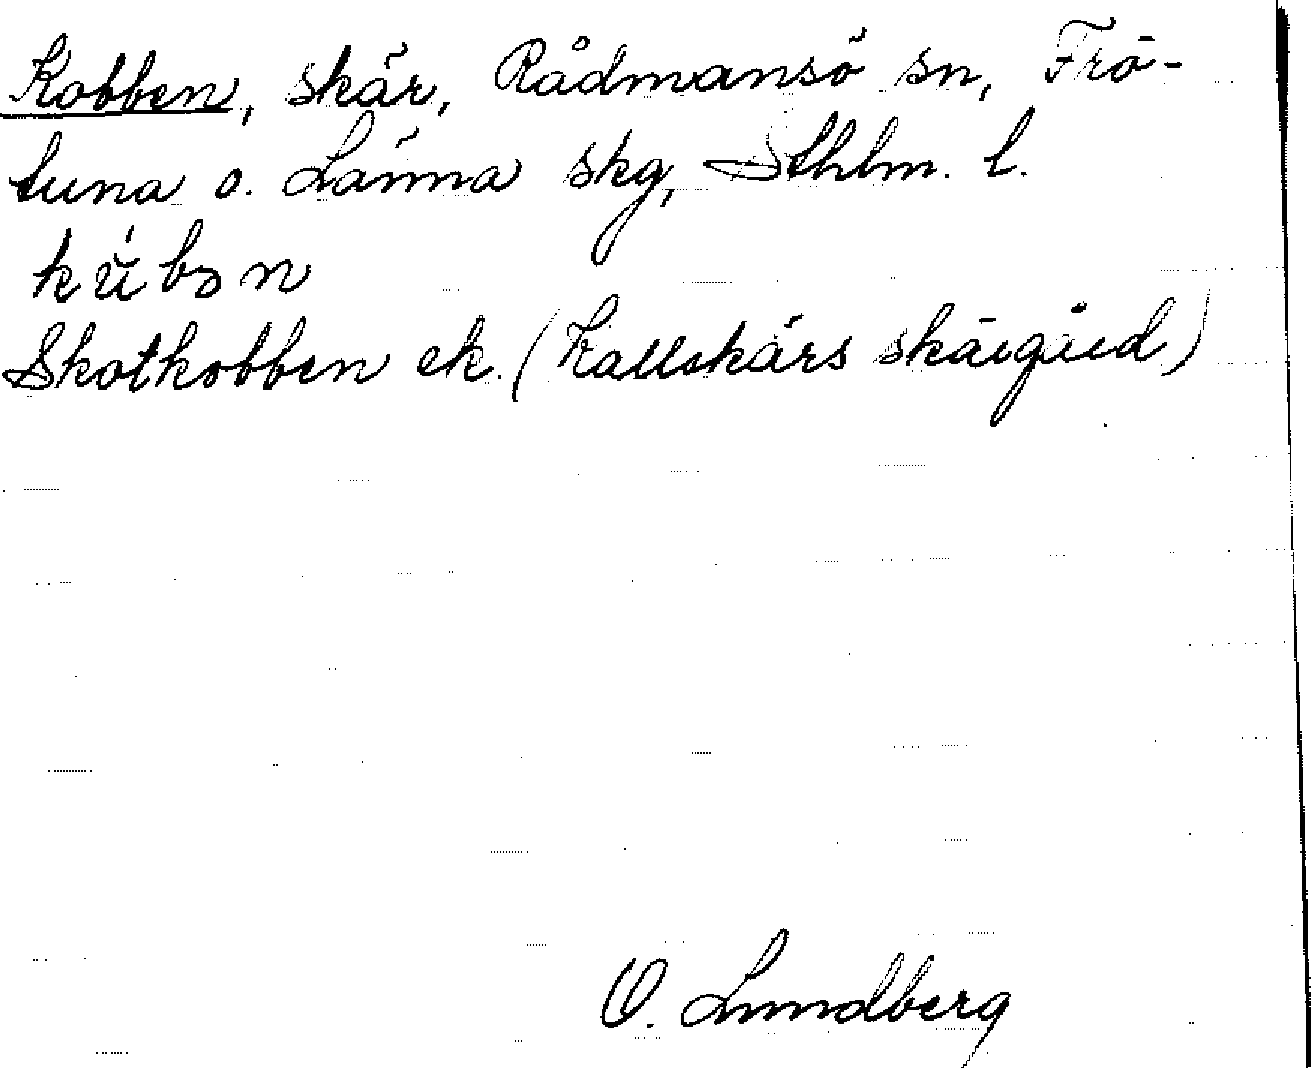 Kobben, skär, Rådmansö sn, Frö-
tuna o. Länna skg, Sthlm. l.
kǜbɔn
Skotkobben ek. (Kallskärs skärgård)
O. Lundberg